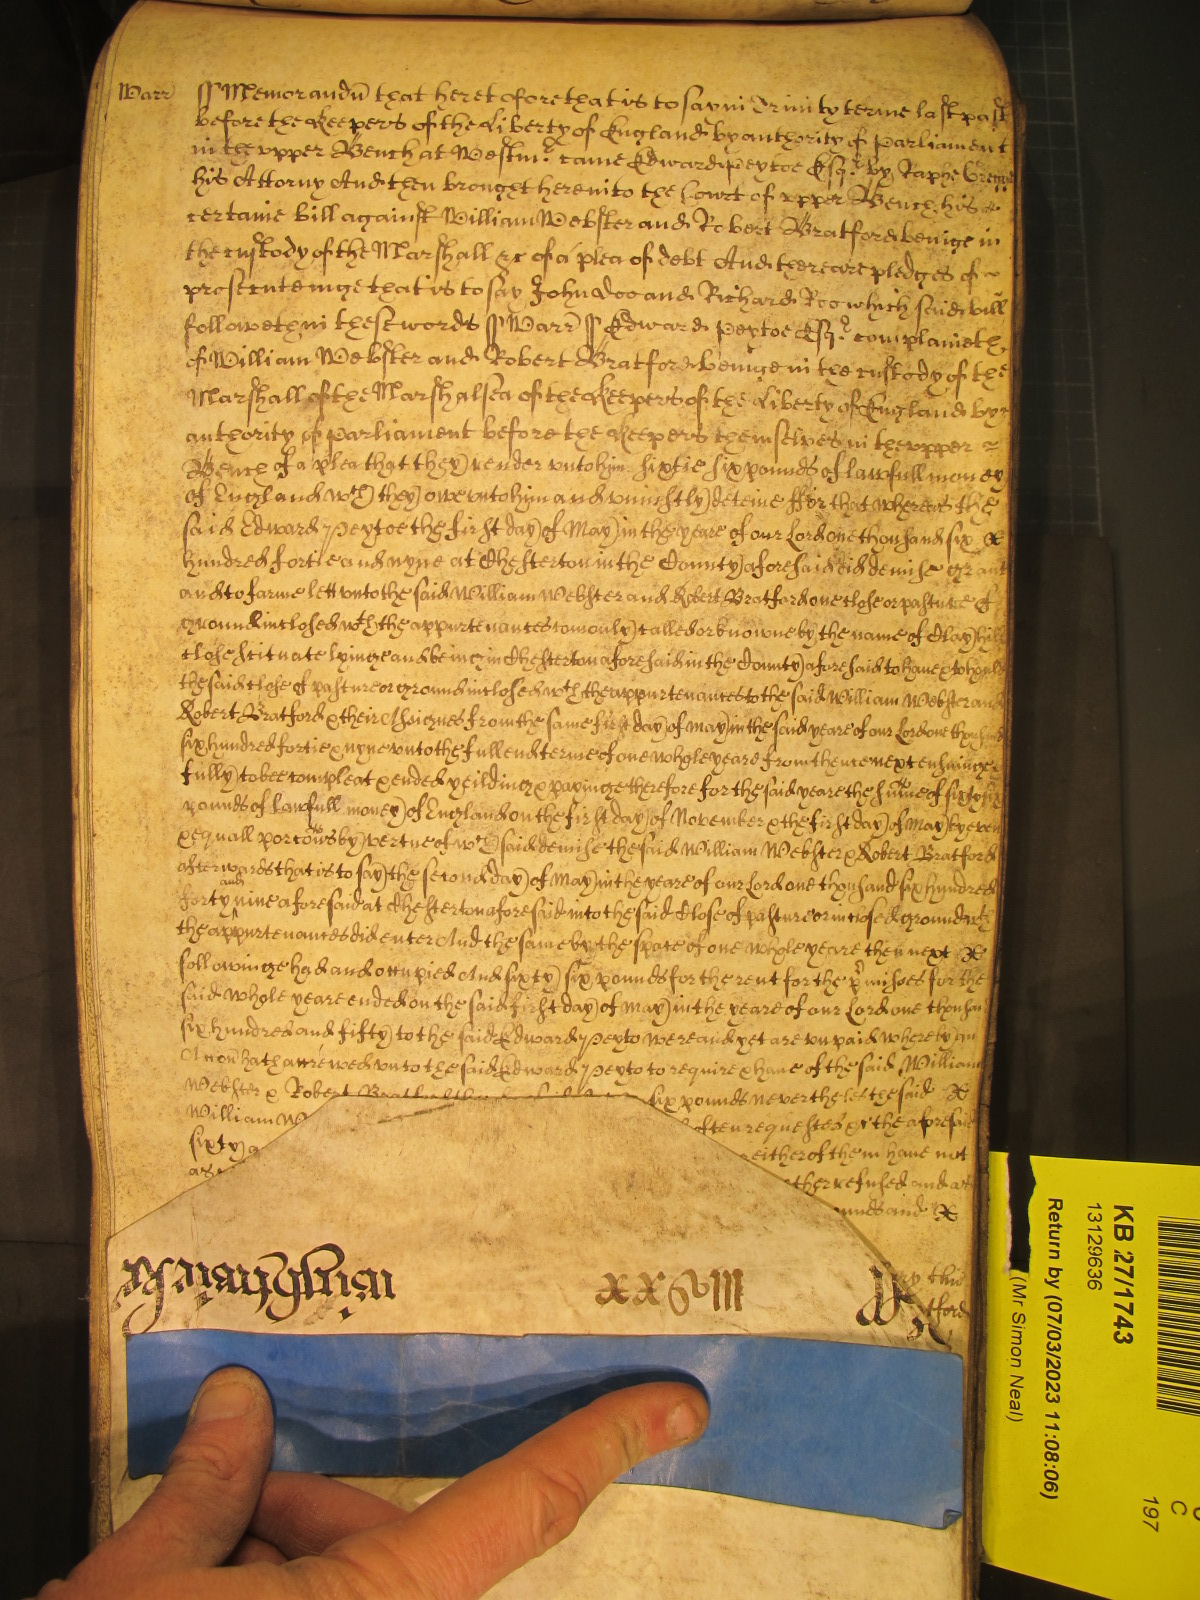 Warr
ss Memorandū that heretofore that is to say in Trinity terme last past
before the Keepers of the Liberty of England by authority of Parliament
in the vpper Bench at Westmr came Edward Peytoe Esqr by Raphe
his Attorny And then brought here into the Court of vpper Bench his
certaine bill against William Webster and Robert Bratford beinge in
the custody of the Marshall &c of a plea of debt And there are pledges of
prosecuteinge that is to say John Doo and Richard Roo which said bill
followeth in these words ss Warr ss Edward Peytoe Esqr complaineth
of William Webster and Robert Bratford beinge in the custody of the
Marshall of the Marshalsea of the Keepers of the Liberty of England by
authority of Parliament before the Keepers themselves in the vpper
Bench of a plea that they render vnto him sixtie six pounds of lawfull money
of England wch they owe vnto him and vniustly deteine ffor that whereas the
said Edward Peytoe the first day of May in the yeare of our Lord one thousand six
hundred fortie and nyne at Chesterton in the County aforesaid did demise grant
and to farme lett vnto the said William Webster and Robert Bratford one close or pasture
ground inclosed wth the appurtenances comonly called or knowne by the name of Clay hill
close scituate lyinge and being in Chesterton aforesaid in the County aforesaid to haue & to hould
the said close of pasture or ground inclosed wth the appurtenances to the said William Webster and
Robert Bratford & their Assignes from the same first day of may in the said yeare of our Lord one thousand
six hundred fortie & nyne vnto the full end terme of one whole yeare from thence next ensuinge
fully to bee compleat & ended yeilding & payinge therefore for the said yeare the sume of sixty six
pounds of lawfull money of England on the first day of November & the first day of May by even
& equall porcōns by vertue of wch said demise the said William Webster & Robert Bratford
afterwards that is to say the second day of May in the yeare of our Lord one thousand six hundred
forty and nine aforesaid at Chesterton aforesaid into the said Close of pasture or inclosed ground wth
the appurtenances did enter And the same by the space of one whole yeare then next
followinge had and occupied And sixty six pounds for the rent for the p̄misses for the
said whole yeare ended on the said first day of May in the yeare of our Lord one thousand
six hundred and fifty to the said Edward Peyto were and yet are vnpaid whereby an
Accōn hath accrewed vnto the said Edward Peyto to require & haue of the said William
Webster & Robert six pounds neverthelesse the said
William often requested & the aforesaid
sixty neither of them haue not
refused and
and
this
xxviij
KB 27/1743
13129636
Return by (07/03/2023 11:08:06)
(Mr Simon Neal)
C
197